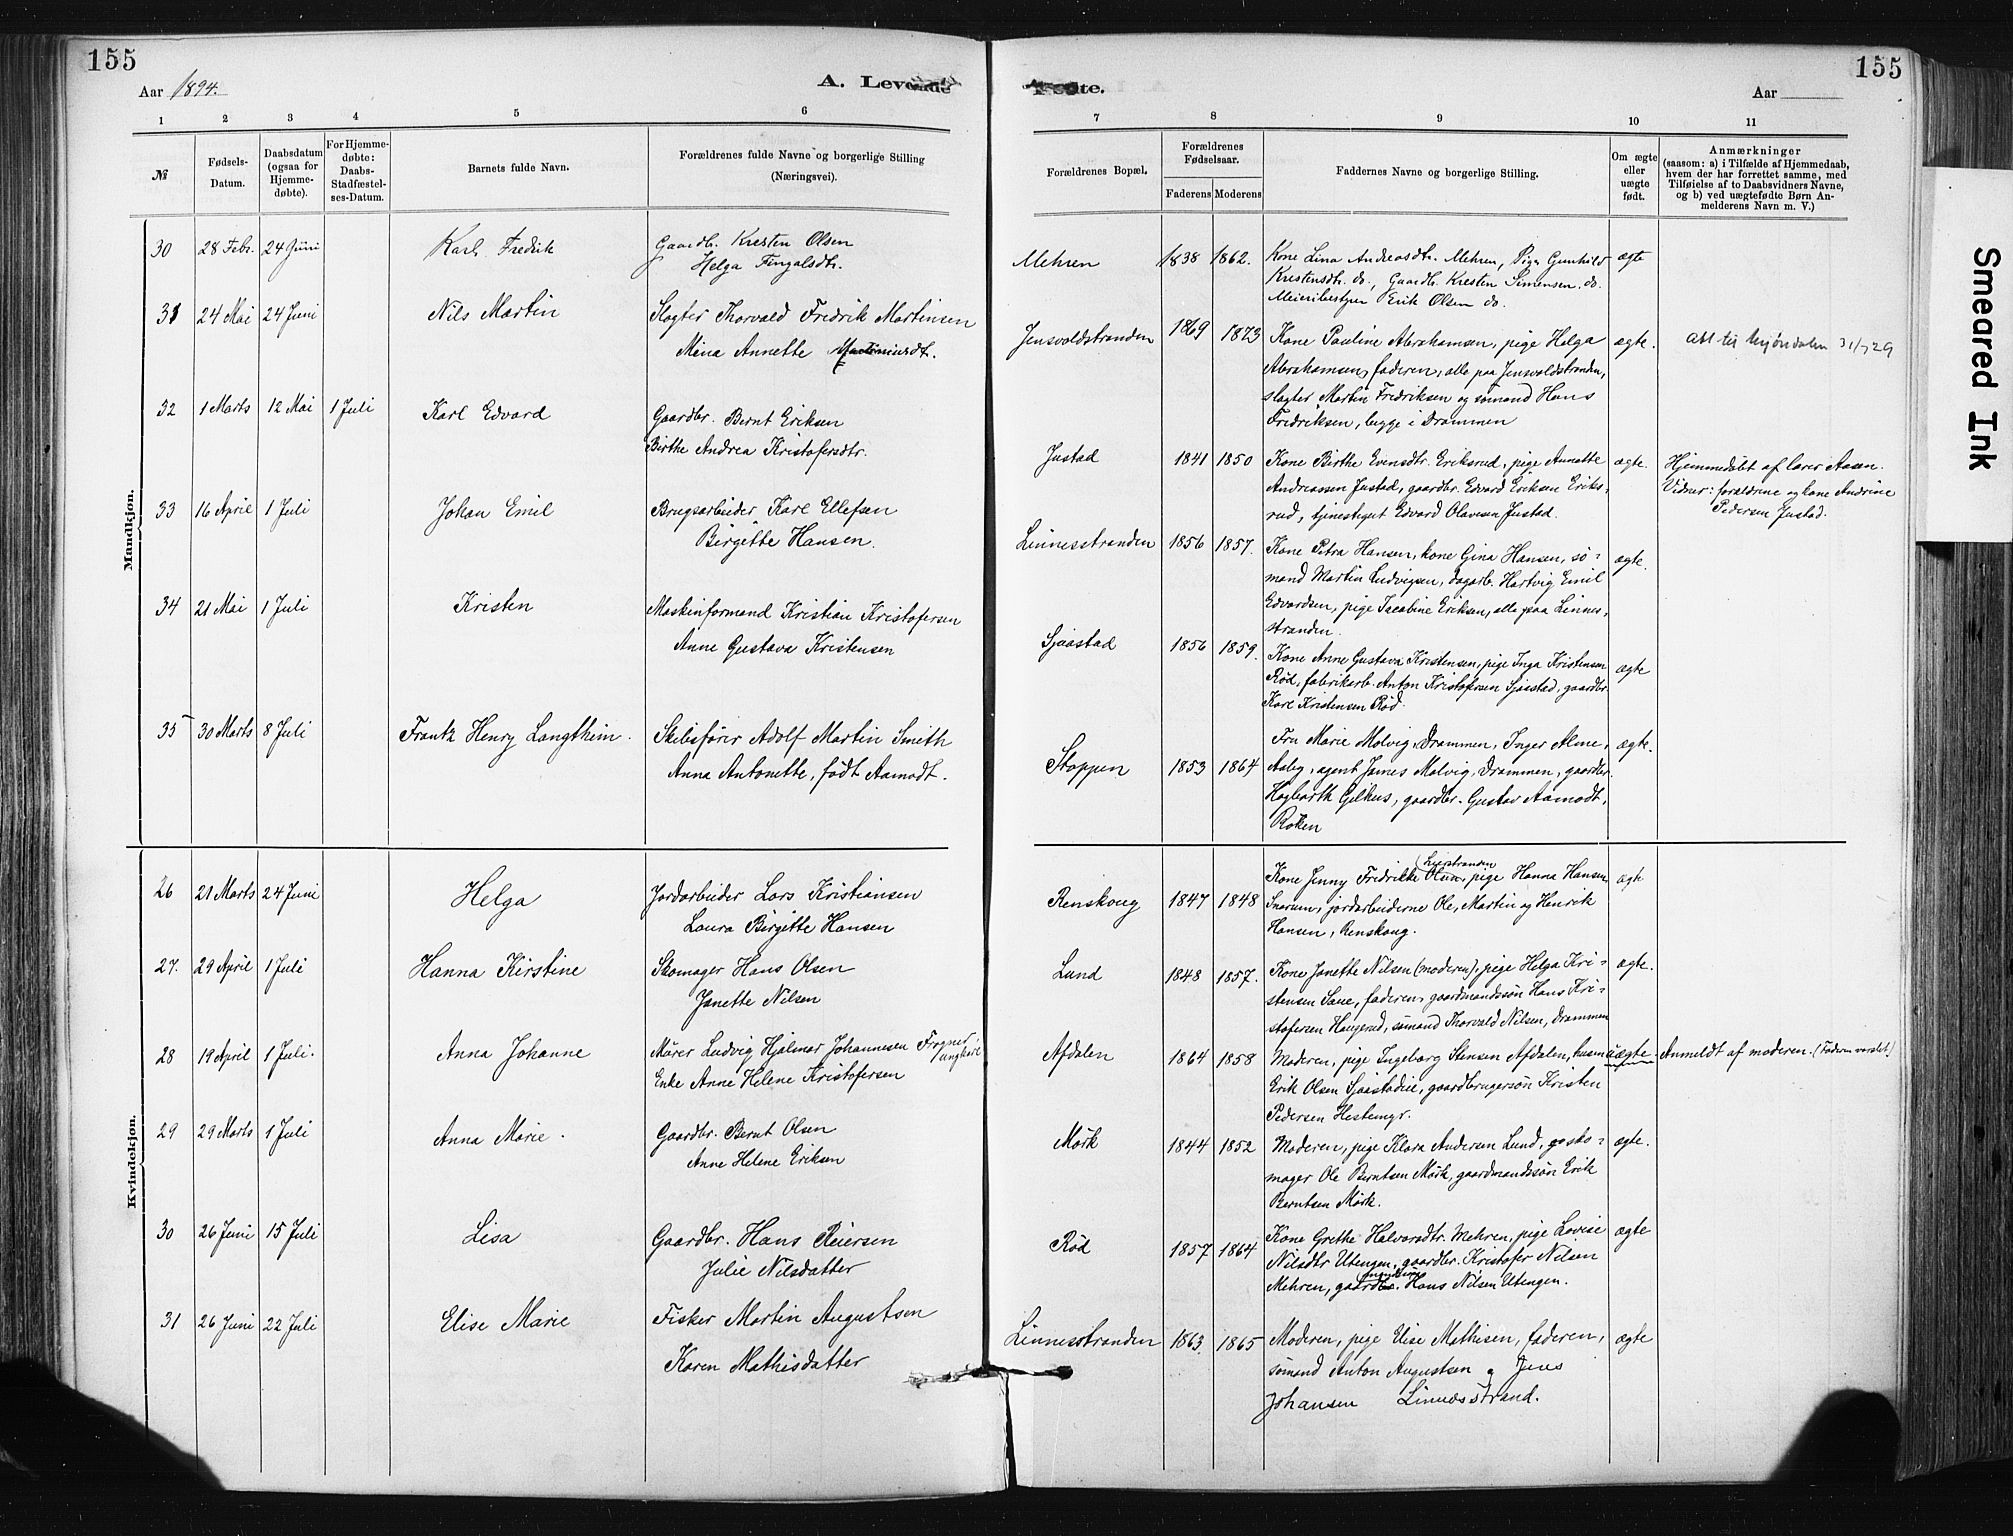 155
Aar 1894.
A. Levende
1 2 3 4 5 6
№
Fødsels-
Datum.
Daabsdatum
(ogsaa for
Hjemme-
døbte).
For Hjemme-
døbte:
Daabs-
Stadfæstel-
ses-Datum.
Barnets fulde Navn.
Forældrenes fulde Navne og borgerlige Stilling
(Næringsvei).
Mandkjøn.
30 28 Febr. 24 Juni Karl Fredrik Gaardb. Kresten Olsen
Helga Fingalsdtr.
31 24 Mai 24 Juni Nils Martin Slagter Thorvald Fredrik Martinsen
Mina Annette
32 1 Marts 12 Mai 1 Juli Karl Edvard Gaardbr. Bernt Eriksen
Birthe Andrea Kristofersdtr.
33 16 April 1 Juli Johan Emil Brugsarbeider Karl Ellefsen
Birgitte Hansen.
34 21 Mai 1 Juli Kristen Maskinformand Kristian Kristofersen
Anne Gustava Kristensen
35 30 Marts 8 Juli Frantz Henry Langthim. Skibsfører Adolf Martin Smith
Anna Antonette, født Aamodt.
Kvindekjøn.
26 21 Marts 24 Juni Helga Jordarbeider Lars Kristiansen
Laura Birgitte Hansen
27. 29 April 1 Juli Hanna Kirstine Skomager Hans Olsen
Janette Nilsen
28 19 April 1 Juli. Anna Johanne Murer Ludvig Hjalmar Johannesen Frogner
ungkarl
Enke Anne Helene Kristofersen
29 29 Marts 1 Juli Anna Marie. Gaardbr. Bernt Olsen
Anne Helene Eriksen
30 26 Juni 15 Juli Lisa Gaardbr. Hans Reiersen
Julie Nilsdatter
31 26 Juni 22 Juli Elise Marie Fisker Martin Augustsen
Karen Mathisdatter
155
Fødte.
Aar
7 8 9 10 11
Forældrenes Bopæl.
Forældrenes
Fødselsaar.
Faderens Moderens
Faddernes Navne og borgerlige Stilling.
Om ægte
eller
uægte
født.
Anmærkninger
(saasom: a) i Tilfælde af Hjemmedaab,
hvem der har forrettet samme, med
Tilføielse af to Daabsvidners Navne,
og b) ved uægtefødte Børn An-
melderens Navn m. V.)
Mehren 1838 1862. Kone Lina Andreasdtr. Mehren, Pige Gunhild ægte
Kristensdtr. do., Gaardb. Kresten Simensen. do.
Meieribestyrer Erik Olsen do.
Jensvoldstranden 1869 1873 Kone Pauline Abrahamsen, pige Helga ægte. att til Mjøndalen 31/7 29
Abrahamsen, faderen, alle paa Jensvoldstranden,
slagter Martin Fredriksen og sømand Hans
Fredriksen, begge i Drammen
Justad 1841 1850 Kone Birthe Evensdtr. Eriksrud, pige Annette ægte. Hjemmedøbt af lærer Aasen.
Andreassen Justad, gaardbr. Edvard Eriksen Eriks- Vidner: forældrene og kone Andrine
rud, tjenestegut Edvard Olavesen Justad. Pedersen Justad.
Linnesstranden 1856 1857. Kone Petra Hansen, kone Gina Hansen, sø- ægte.
mand Martin Ludvigsen, dagarb. Hartvig Emil
Edvardsen, pige Jacobine Eriksen, alle paa Linnes-
stranden.
Sjaastad 1856 1859. Kone Anne Gustava Kristensen, pige Inga Kristensen ægte
Rød, fabrikarb. Anton Kristofersen Sjaastad, gaardbr.
Karl Kristensen Rød.
Stoppen 1853 1864 Fru Marie Molvig, Drammen, Inger Alme, ægte.
Aasby, agent James Molvig, Drammen, gaardbr.
Hagbarth Gilhus, gaardbr. Gustav Aamodt,
Røken
Renskoug 1847 1848 Kone Jenny Fredrikke Olsen, Lierstranden pige Hanna Hansen ægte
Snarum, jordarbeiderne Ole, Martin og Henrik
Hansen, Renskoug.
Lund 1848 1857. Kone Janette Nilsen (moderen), pige Helga Kri- ægte.
stensen Saue, faderen, gaardmandssøn Hans Kri-
stofersen Haugerud, sømand Thorvald Nilsen, Drammen
Afdalen 1864 1858 Moderen, pige Ingeborg Stensen Afdalen, husm. uægte. Anmeldt af moderen. (Faderen varslet)
Erik Olsen Sjaastadie, gaardbrugersøn Kristen
Pedersen Hestemyr.
Mørk 1844 1852 Moderen, pige Klara Andersen Lund, sko- ægte.
mager Ole Berntsen Mørk, gaardmandssøn Erik
Berntsen Mørk.
Rød 1857 1864 Kone Grethe Halvorsdtr. Mehren, pige Lovise ægte
Nilsdtr Utengen, gaardbr. Kristofer Nilsen
Mehren, Hans Nilsen Utengen.
Linnesstranden 1863. 1865 Moderen, pige Elise Mathisen, faderen, ægte
sømand Anton Augustsen og Jens
Johansen Linnesstrand.
Smeared Ink